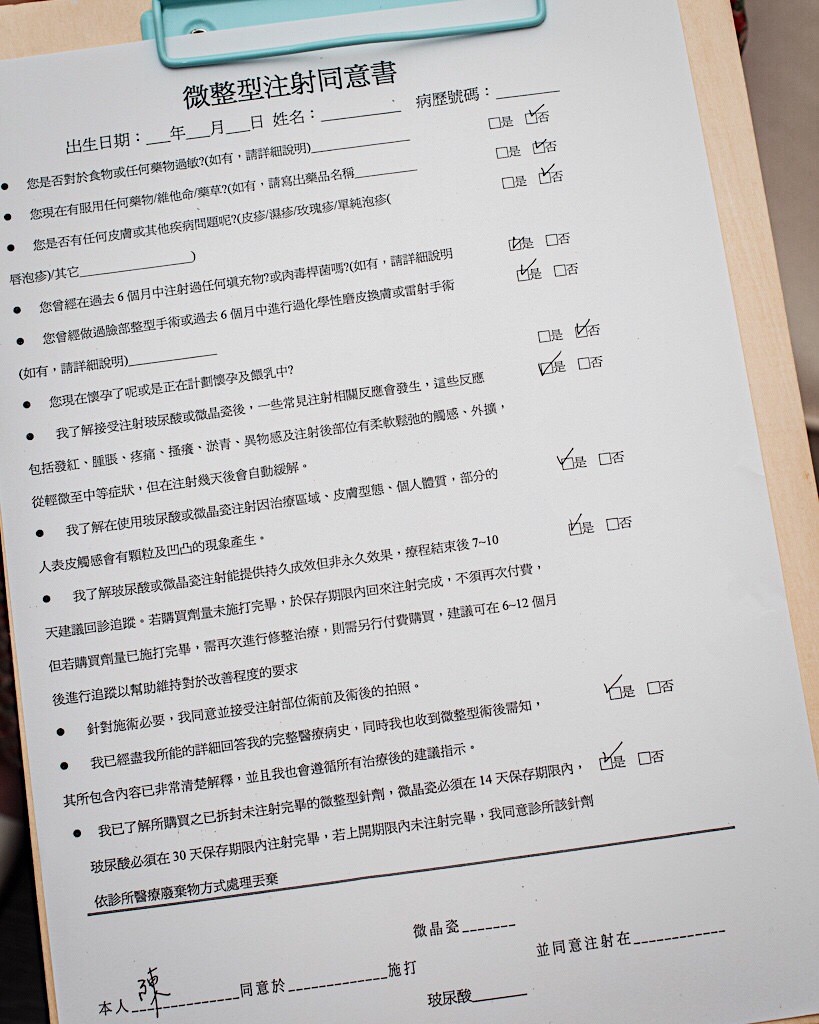 微整型注射同意書
出生日期：___年___月___日 姓名：________ 病歷號碼：_______
● 您是否對於食物或任何藥物過敏?(如有，請詳細說明)__________ □是 ☑否
● 您現在有服用任何藥物/維他命/藥草?(如有，請寫出藥品名稱________ □是 ☑否
● 您是否有任何皮膚或其他疾病問題呢?(皮疹/濕疹/玫瑰疹/單純泡疹( □是 ☑否
唇泡疹)/其它______________)
● 您曾經在過去 6 個月中注射過任何填充物?或肉毒桿菌嗎?(如有，請詳細說明 ☑是 □否
● 您曾經做過臉部整型手術或過去 6 個月中進行過化學性磨皮換膚或雷射手術 ☑是 □否
(如有，請詳細說明)___________
● 您現在懷孕了呢或是正在計劃懷孕及餵乳中? □是 ☑否
● 我了解接受注射玻尿酸或微晶瓷後，一些常見注射相關反應會發生，這些反應 ☑是 □否
包括發紅、腫脹、疼痛、搔癢、淤青、異物感及注射後部位有柔軟鬆弛的觸感、外擴，
從輕微至中等症狀，但在注射幾天後會自動緩解。
● 我了解在使用玻尿酸或微晶瓷注射因治療區域、皮膚型態、個人體質，部分的 ☑是 □否
人表皮觸感會有顆粒及凹凸的現象產生。
● 我了解玻尿酸或微晶瓷注射能提供持久成效但非永久效果，療程結束後 7~10 ☑是 □否
天建議回診追蹤。若購買劑量未施打完畢，於保存期限內回來注射完成，不須再次付費，
但若購買劑量已施打完畢，需再次進行修整治療，則需另行付費購買，建議可在 6~12 個月
後進行追蹤以幫助維持對於改善程度的要求
● 針對施術必要，我同意並接受注射部位術前及術後的拍照。 ☑是 □否
● 我已經盡我所能的詳細回答我的完整醫療病史，同時我也收到微整型術後需知，
其所包含內容已非常清楚解釋，並且我也會遵循所有治療後的建議指示。 ☑是 □否
● 我已了解所購買之已拆封未注射完畢的微整型針劑，微晶瓷必須在 14 天保存期限內，
玻尿酸必須在 30 天保存期限內注射完畢，若上開期限內未注射完畢，我同意診所該針劑
依診所醫療廢棄物方式處理丟棄
微晶瓷_______
本人__陳________同意於____________施打 並同意注射在___________
玻尿酸_______